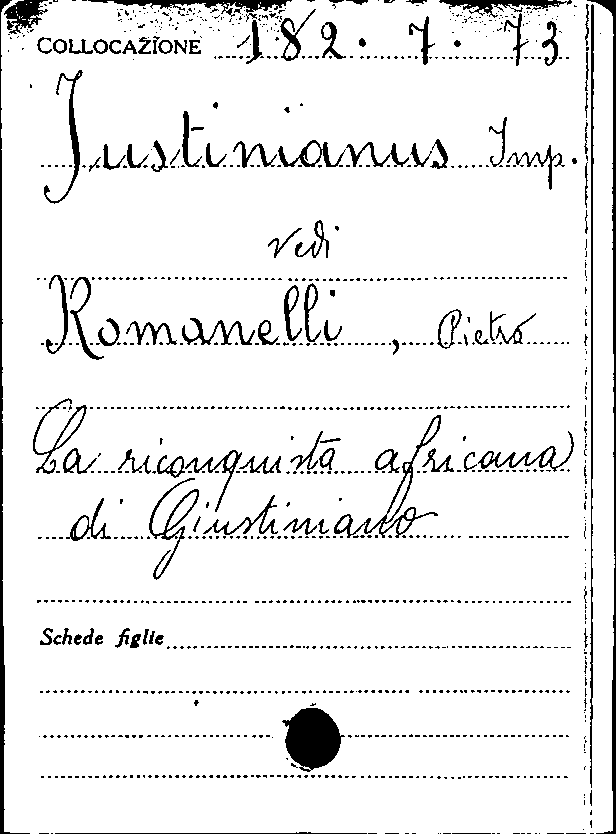 COLLOCAZIONE 182. 7. 73
Justinianus Imp.
vedi
Romanelli, Pietro
La riconquista africana
di Giustiniano
Schede figlie